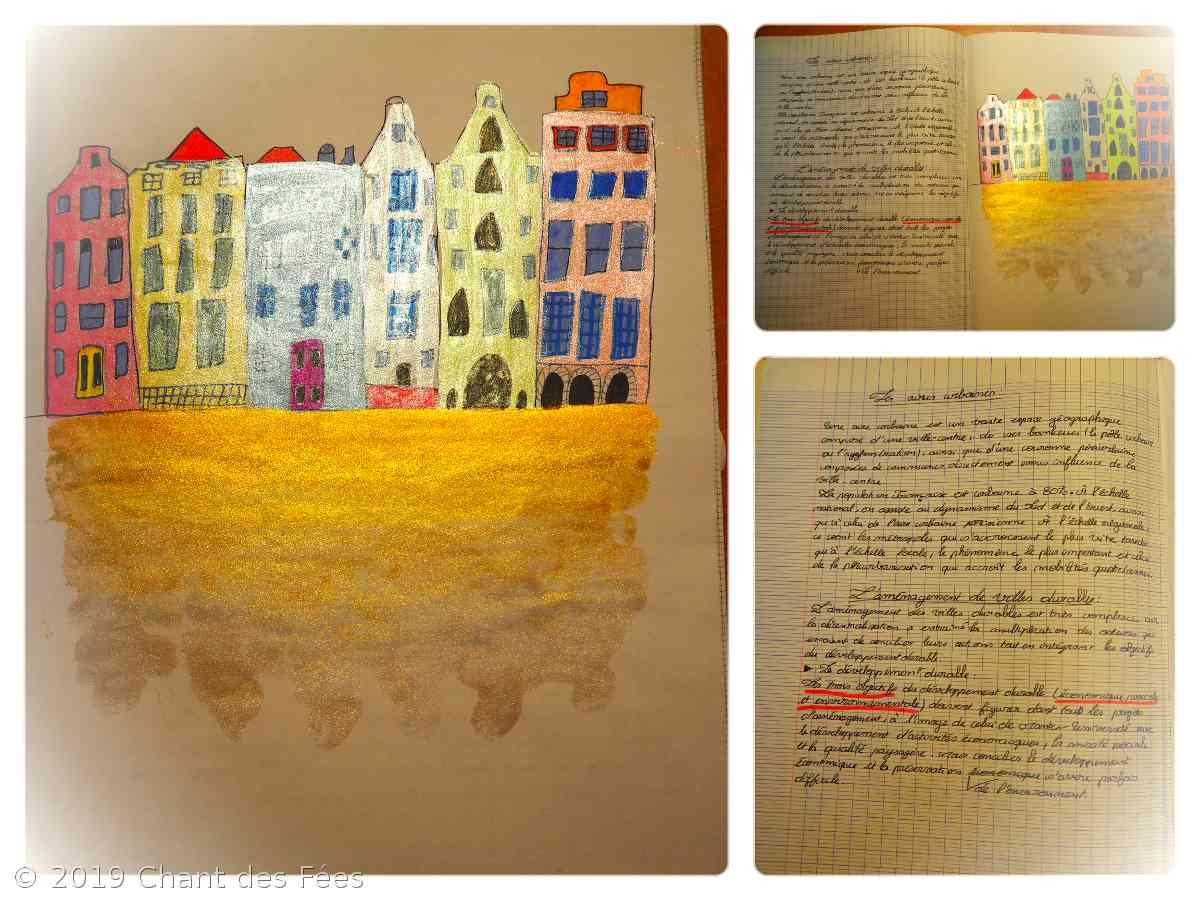 Les aires urbaines
Une aire urbaine est un vaste espace géographique
composé d'une ville-centre, de ses banlieues (le pôle urbain
ou l'agglomération), ainsi que d'une couronne périurbaine,
composées de communes directement sous influence de la
ville-centre
La population Française est urbaine à 80%. À l'échelle
national, on assiste au dynamisme du Sud et de l'Ouest, aussi
qu'à celui de l'aire urbaine parisienne. À l'échelle régionale,
ce sont les métropoles qui s'accroissent le plus vite tandis
qu'à l'échelle locale, le phénomène le plus important est celui
de la périurbanisation qui accroît les mobilités quotidiennes.
L'aménagement de villes durables
L'aménagement des villes durables est très complexe, car
la décentralisation a entraîné la multiplication des acteurs qui
essaient de concilier leurs actions tout en intégrant les objectifs
du développement durable.
► Le développement durable
Les trois objectifs du développement durable (économique, sociale
et environnementale) doivent figurer dans tout les projets
d'aménagement, à l'image de celui de
le développement d'activités économiques, la mixité sociale
et la qualité paysagère. Mais concilier le développement
économique et la préservation économique s'avère parfois
difficile. de l'environnement.
© 2019 Chant des Fées